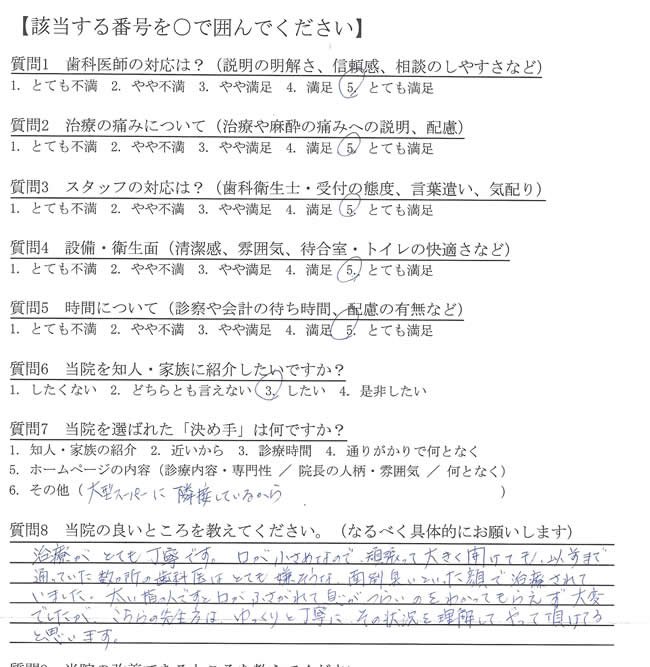 【該当する番号を○で囲んでください】
質問1 歯科医師の対応は？（説明の明解さ、信頼感、相談のしやすさなど）
1. とても不満 2. やや不満 3. やや満足 4. 満足 5. とても満足
質問2 治療の痛みについて（治療や麻酔の痛みへの説明、配慮）
1. とても不満 2. やや不満 3. やや満足 4. 満足 5. とても満足
質問3 スタッフの対応は？（歯科衛生士・受付の態度、言葉遣い、気配り）
1. とても不満 2. やや不満 3. やや満足 4. 満足 5. とても満足
質問4 設備・衛生面（清潔感、雰囲気、待合室・トイレの快適さなど）
1. とても不満 2. やや不満 3. やや満足 4. 満足 5. とても満足
質問5 時間について（診察や会計の待ち時間、配慮の有無など）
1. とても不満 2. やや不満 3. やや満足 4. 満足 5. とても満足
質問6 当院を知人・家族に紹介したいですか？
1. したくない 2. どちらとも言えない 3. したい 4. 是非したい
質問7 当院を選ばれた「決め手」は何ですか？
1. 知人・家族の紹介 2. 近いから 3. 診療時間 4. 通りがかりで何となく
5. ホームページの内容（診療内容・専門性 ／ 院長の人柄・雰囲気 ／ 何となく）
6. その他（大型スーパーに隣接しているから）
質問8 当院の良いところを教えてください。（なるべく具体的にお願いします）
治療がとても丁寧です。口が小さめなので頑張って大きく開けても、以前まで
通っていた数か所の歯科医はとても嫌そうな、面倒臭いといった顔で治療されて
いました。太い指の人ですと口がふさがれて息がつらいのをわかってもらえず大変
でしたが、こちらの先生方は、ゆっくりと丁寧に、その状況を理解してやって頂けてる
と思います。